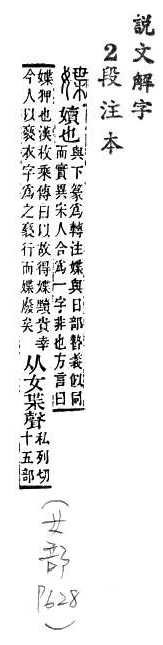 說文解字
2段注本
媟 嬻也與下篆爲轉注媟與日部暬義似同
而實異宋人合爲一字非也方言曰
媟狎也漢枚乘傳曰以故得媟黷貴幸
今人以褻衣字爲之褻行而媟廢矣
从女枼聲私列切
十五部
(女部 P628)